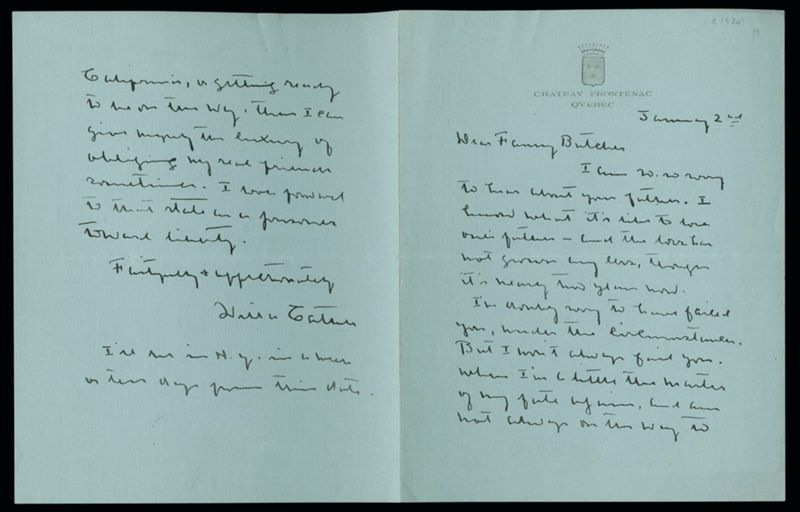 CHATEAU FRONTENAC
QUEBEC
January 2nd
Dear Fanny Butcher
I am so, so sorry
to hear about your father. I
know what it's like to lose
one's father – and the loss has
not grown any less, though
it's nearly two years now.
I'm doubly sorry to have failed
you, under the circumstances.
But I won't always fail you.
When I'm a little the master
of my fate again, and am
not always on the way to
California, or getting ready
to be on the way, then I can
give myself the luxury of
obliging my real friends
sometimes. I look forward
to that state as a prisoner
toward liberty.
Faithfully & affectionately
Willa Cather
I'll be in N.Y. in a week
or ten days from this date.